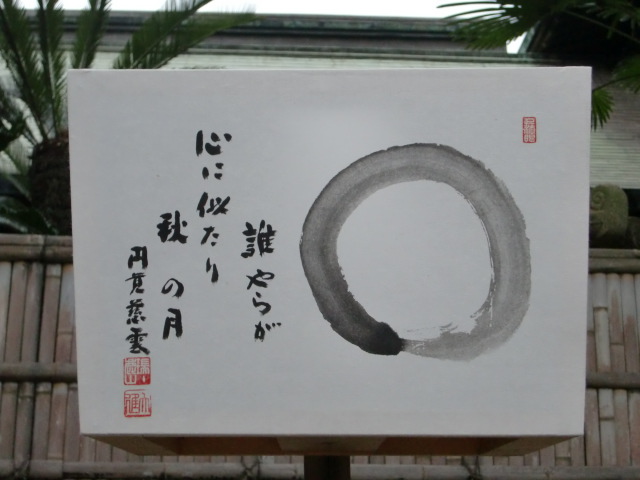 誰やらが
心に似たり
秋の月
円覚慈雲